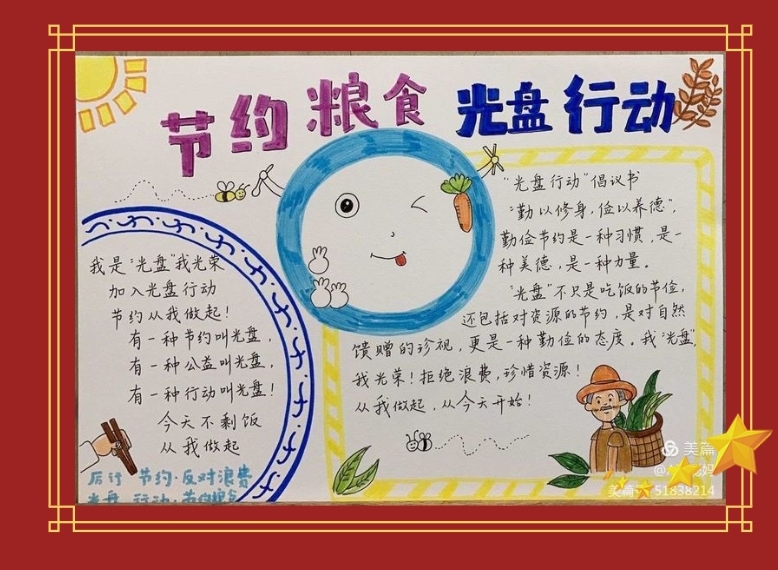 节约粮食 光盘行动
我是“光盘”我光荣
加入光盘行动
节约从我做起！
有一种节约叫光盘，
有一种公益叫光盘，
有一种行动叫光盘！
今天不剩饭
从我做起
厉行 节约·反对浪费
光盘 行动·节约粮食
“光盘行动”倡议书
“勤以修身，俭以养德”，
勤俭节约是一种习惯，是一
种美德，是一种力量。
“光盘”不只是吃饭的节俭，
还包括对资源的节约，是对自然
馈赠的珍视，更是一种勤俭的态度，我“光盘”，
我光荣！拒绝浪费，珍惜资源！
从我做起，从今天开始！
美篇
51838214